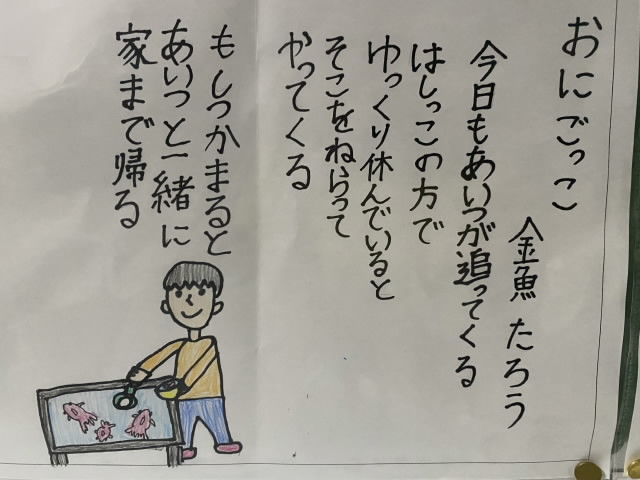 おにごっこ
金魚 たろう
今日もあいつが追ってくる
はしっこの方で
ゆっくり休んでいると
そこをねらって
やってくる
もしつかまると
あいつと一緒に
家まで帰る